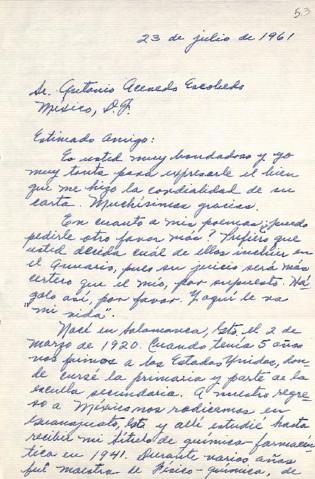 53
23 de julio de 1961
Sr. Antonio Acevedo Escobedo
México, D.F.
Estimado Amigo:
Es usted muy bondadoso y yo
muy tonta para expresarle el bien
que me hizo la cordialidad de su
carta. Muchísimas gracias.
En cuanto a mis poemas, ¿puedo
pedirle otro favor más? Prefiero que
usted decida cuál de ellos incluir en
el Anuario, pues su juicio será más
certero que el mío, por supuesto. Há-
galo así, por favor. Y aquí le va
"mi vida".
Nací en Salamanca, Gto. el 2 de
marzo de 1920. Cuando tenía 5 años
nos fuimos a los Estados Unidos, don-
de cursé la primaria y parte de la
escuela secundaria. A nuestro regre-
so a México nos radicamos en
Guanajuato, Gto. y allí estudié hasta
recibir mi título de química-farmacéu-
tica en 1941. Durante varios años
fuí maestra de Físico-química, de